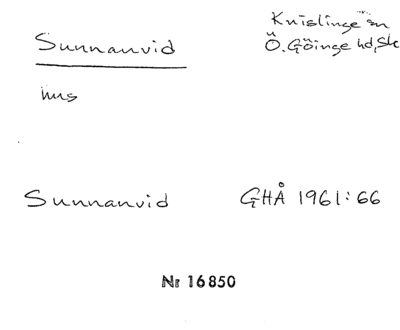 Sunnanvid
Knislinge sn
Ö. Göinge hd, Sk
hus
Sunnanvid
GHÅ 1961:66
Nr 16850